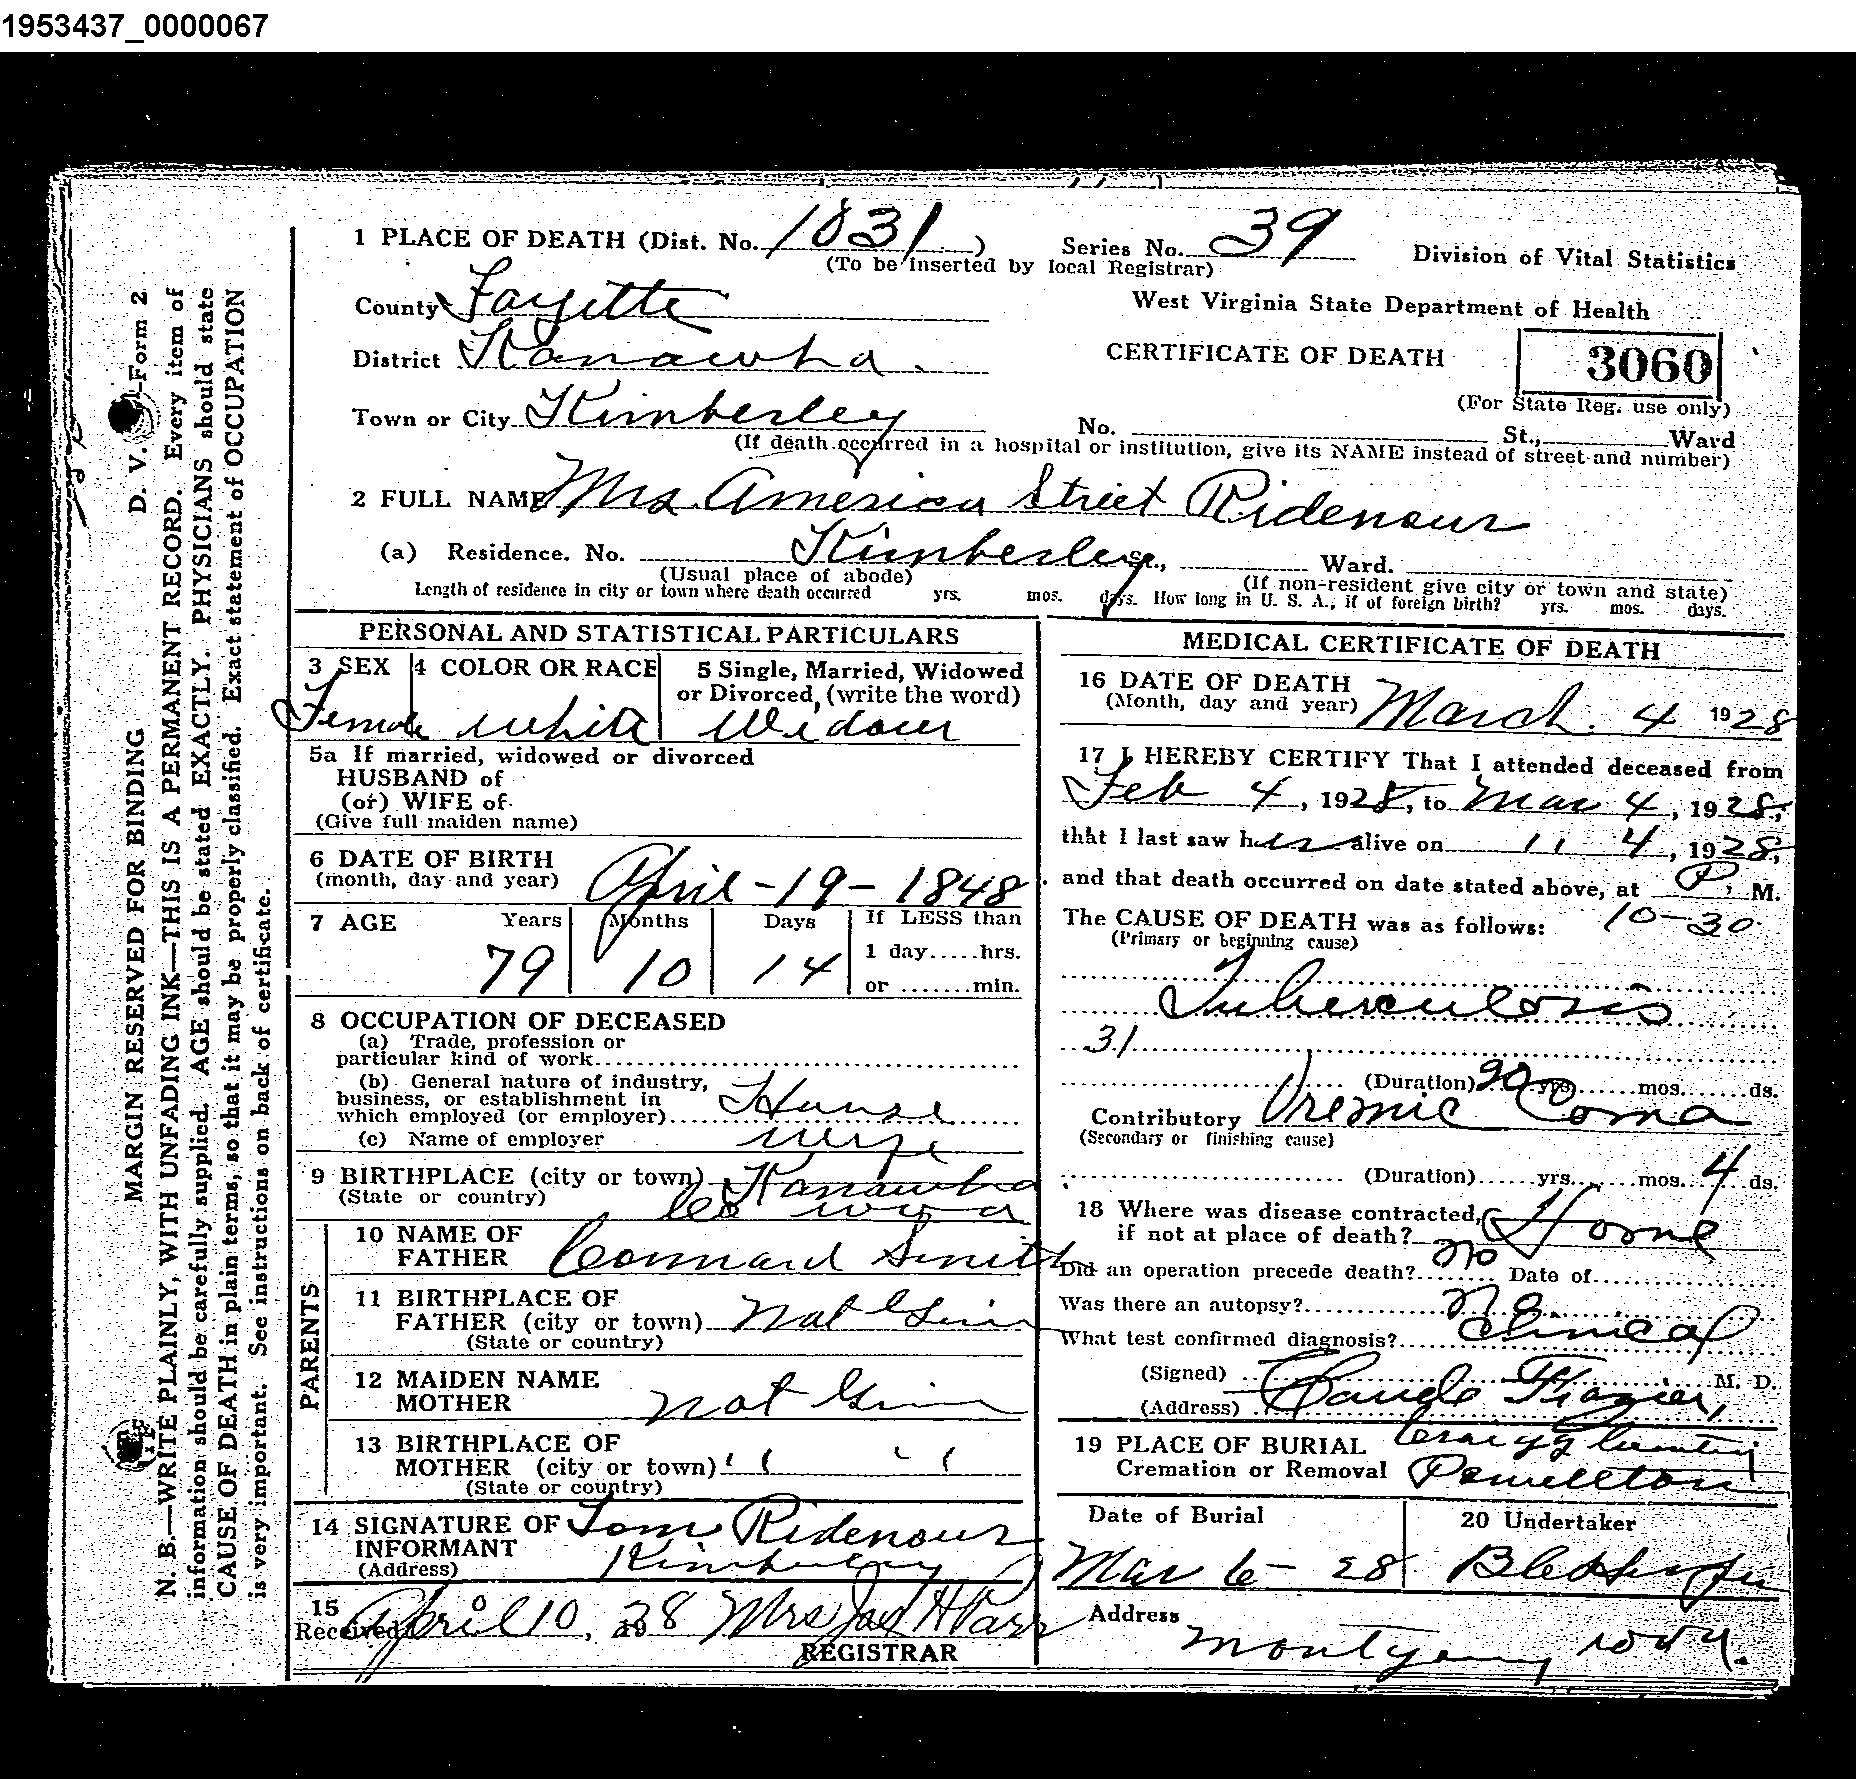 1953437_0000067
1 PLACE OF DEATH (Dist. No. 1031 ) Series No. 39 Division of Vital Statistics
(To be inserted by local Registrar)
County Fayette West Virginia State Department of Health
District Kanawha. CERTIFICATE OF DEATH 3060
(For State Reg. use only)
Town or City Kimberley No. St., Ward
(If death occurred in a hospital or institution, give its NAME instead of street and number)
2 FULL NAME Mrs. America Street Ridenour
(a) Residence. No. Kimberley St., Ward.
(Usual place of abode) (If non-resident give city or town and state)
Length of residence in city or town where death occurred yrs. mos. days. How long in U. S. A., if of foreign birth? yrs. mos. days.
PERSONAL AND STATISTICAL PARTICULARS
3 SEX 4 COLOR OR RACE 5 Single, Married, Widowed
or Divorced, (write the word)
Female white Widow
5a If married, widowed or divorced
HUSBAND of
(or) WIFE of
(Give full maiden name)
6 DATE OF BIRTH
(month, day and year) April-19-1848
7 AGE Years Months Days If LESS than
1 day.....hrs.
79 10 14 or .......min.
8 OCCUPATION OF DECEASED
(a) Trade, profession or
particular kind of work
(b) General nature of industry,
business, or establishment in
which employed (or employer) House
(c) Name of employer wife
9 BIRTHPLACE (city or town) Kanawha
(State or country) Co W Va
PARENTS
10 NAME OF
FATHER Connard Smith
11 BIRTHPLACE OF
FATHER (city or town) not Givin
(State or country)
12 MAIDEN NAME
MOTHER not Givin
13 BIRTHPLACE OF
MOTHER (city or town) " "
(State or country)
14 SIGNATURE OF Tom Ridenour
INFORMANT
(Address) Kimberley
15
Received April 10, 1928 Mrs Jas H Parr
REGISTRAR
MEDICAL CERTIFICATE OF DEATH
16 DATE OF DEATH
(Month, day and year) March. 4 1928
17 I HEREBY CERTIFY That I attended deceased from
Feb 4, 1928, to Mar 4, 1928,
that I last saw her alive on 11 4, 1928,
and that death occurred on date stated above, at P. M.
The CAUSE OF DEATH was as follows: 10-30
(Primary or beginning cause)
Tuberculosis
31
(Duration) 20 yrs. mos. ds.
Contributory Uremic Coma
(Secondary or finishing cause)
(Duration) yrs. mos. 4 ds.
18 Where was disease contracted,
if not at place of death? Home
Did an operation precede death? no Date of
Was there an autopsy? no
What test confirmed diagnosis? Clinical
(Signed) Claude Frazier, M. D.
(Address)
19 PLACE OF BURIAL
Cremation or Removal Powellton
Date of Burial 20 Undertaker
Mar 6-28
Address
Montgomery W Va.
MARGIN RESERVED FOR BINDING D. V. S.-Form 2
N. B.—WRITE PLAINLY, WITH UNFADING INK—THIS IS A PERMANENT RECORD. Every item of
information should be carefully supplied. AGE should be stated EXACTLY. PHYSICIANS should state
CAUSE OF DEATH in plain terms, so that it may be properly classified. Exact statement of OCCUPATION
is very important. See instructions on back of certificate.